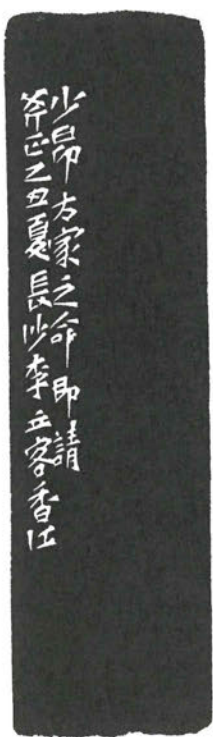 少昂方家之命即請
斧正乙丑夏長沙李立客香江